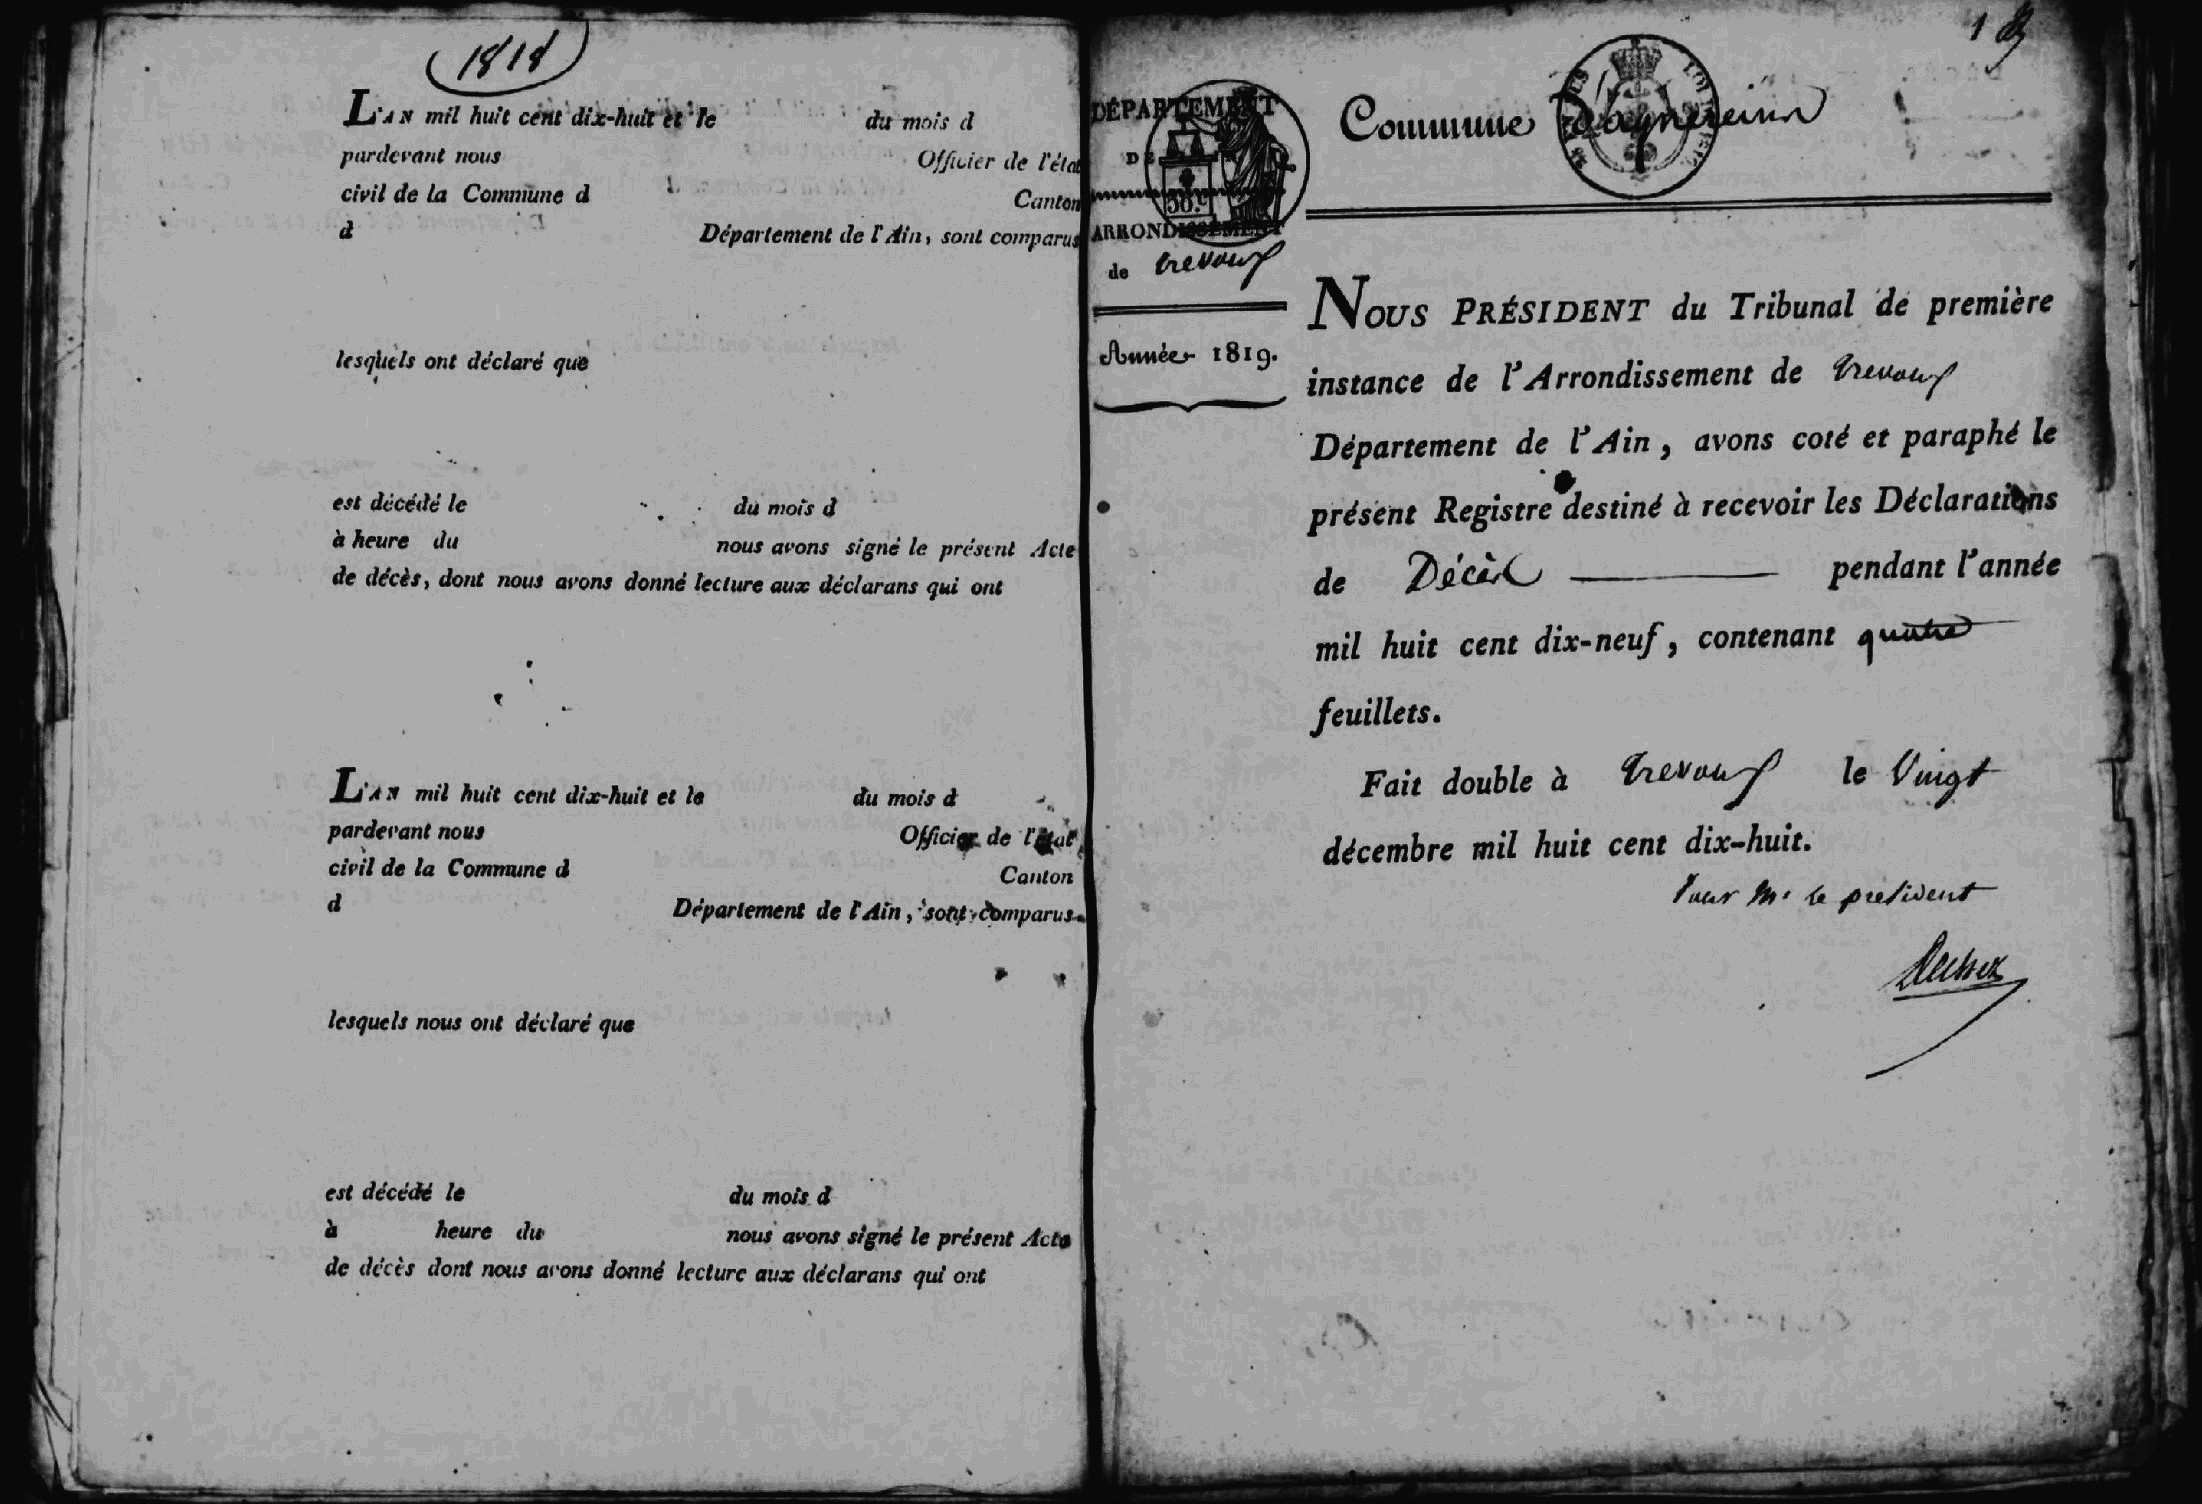 1818
L'AN mil huit cent dix-huit et le du mois d
pardevant nous Officier de l'état
civil de la Commune d Canton
d Département de l'Ain, sont comparus
lesquels ont déclaré que
est décédé le du mois d
à heure du nous avons signé le présent Acte
de décès, dont nous avons donné lecture aux déclarans qui ont
L'AN mil huit cent dix-huit et le du mois d
pardevant nous Officier de l'état
civil de la Commune d Canton
d Département de l'Ain, sont comparus
lesquels nous ont déclaré que
est décédé le du mois d
à heure du nous avons signé le présent Acte
de décès dont nous avons donné lecture aux déclarans qui ont
1
DÉPARTEMENT
DE
ARRONDISSEMENT
de trevoux
Année 1819.
Commune d'agnereins
NOUS PRÉSIDENT du Tribunal de première
instance de l'Arrondissement de trevoux
Département de l'Ain, avons coté et paraphé le
présent Registre destiné à recevoir les Déclarations
de Décès pendant l'année
mil huit cent dix-neuf, contenant quatre
feuillets.
Fait double à trevoux le Vingt
décembre mil huit cent dix-huit.
Pour Mr le president